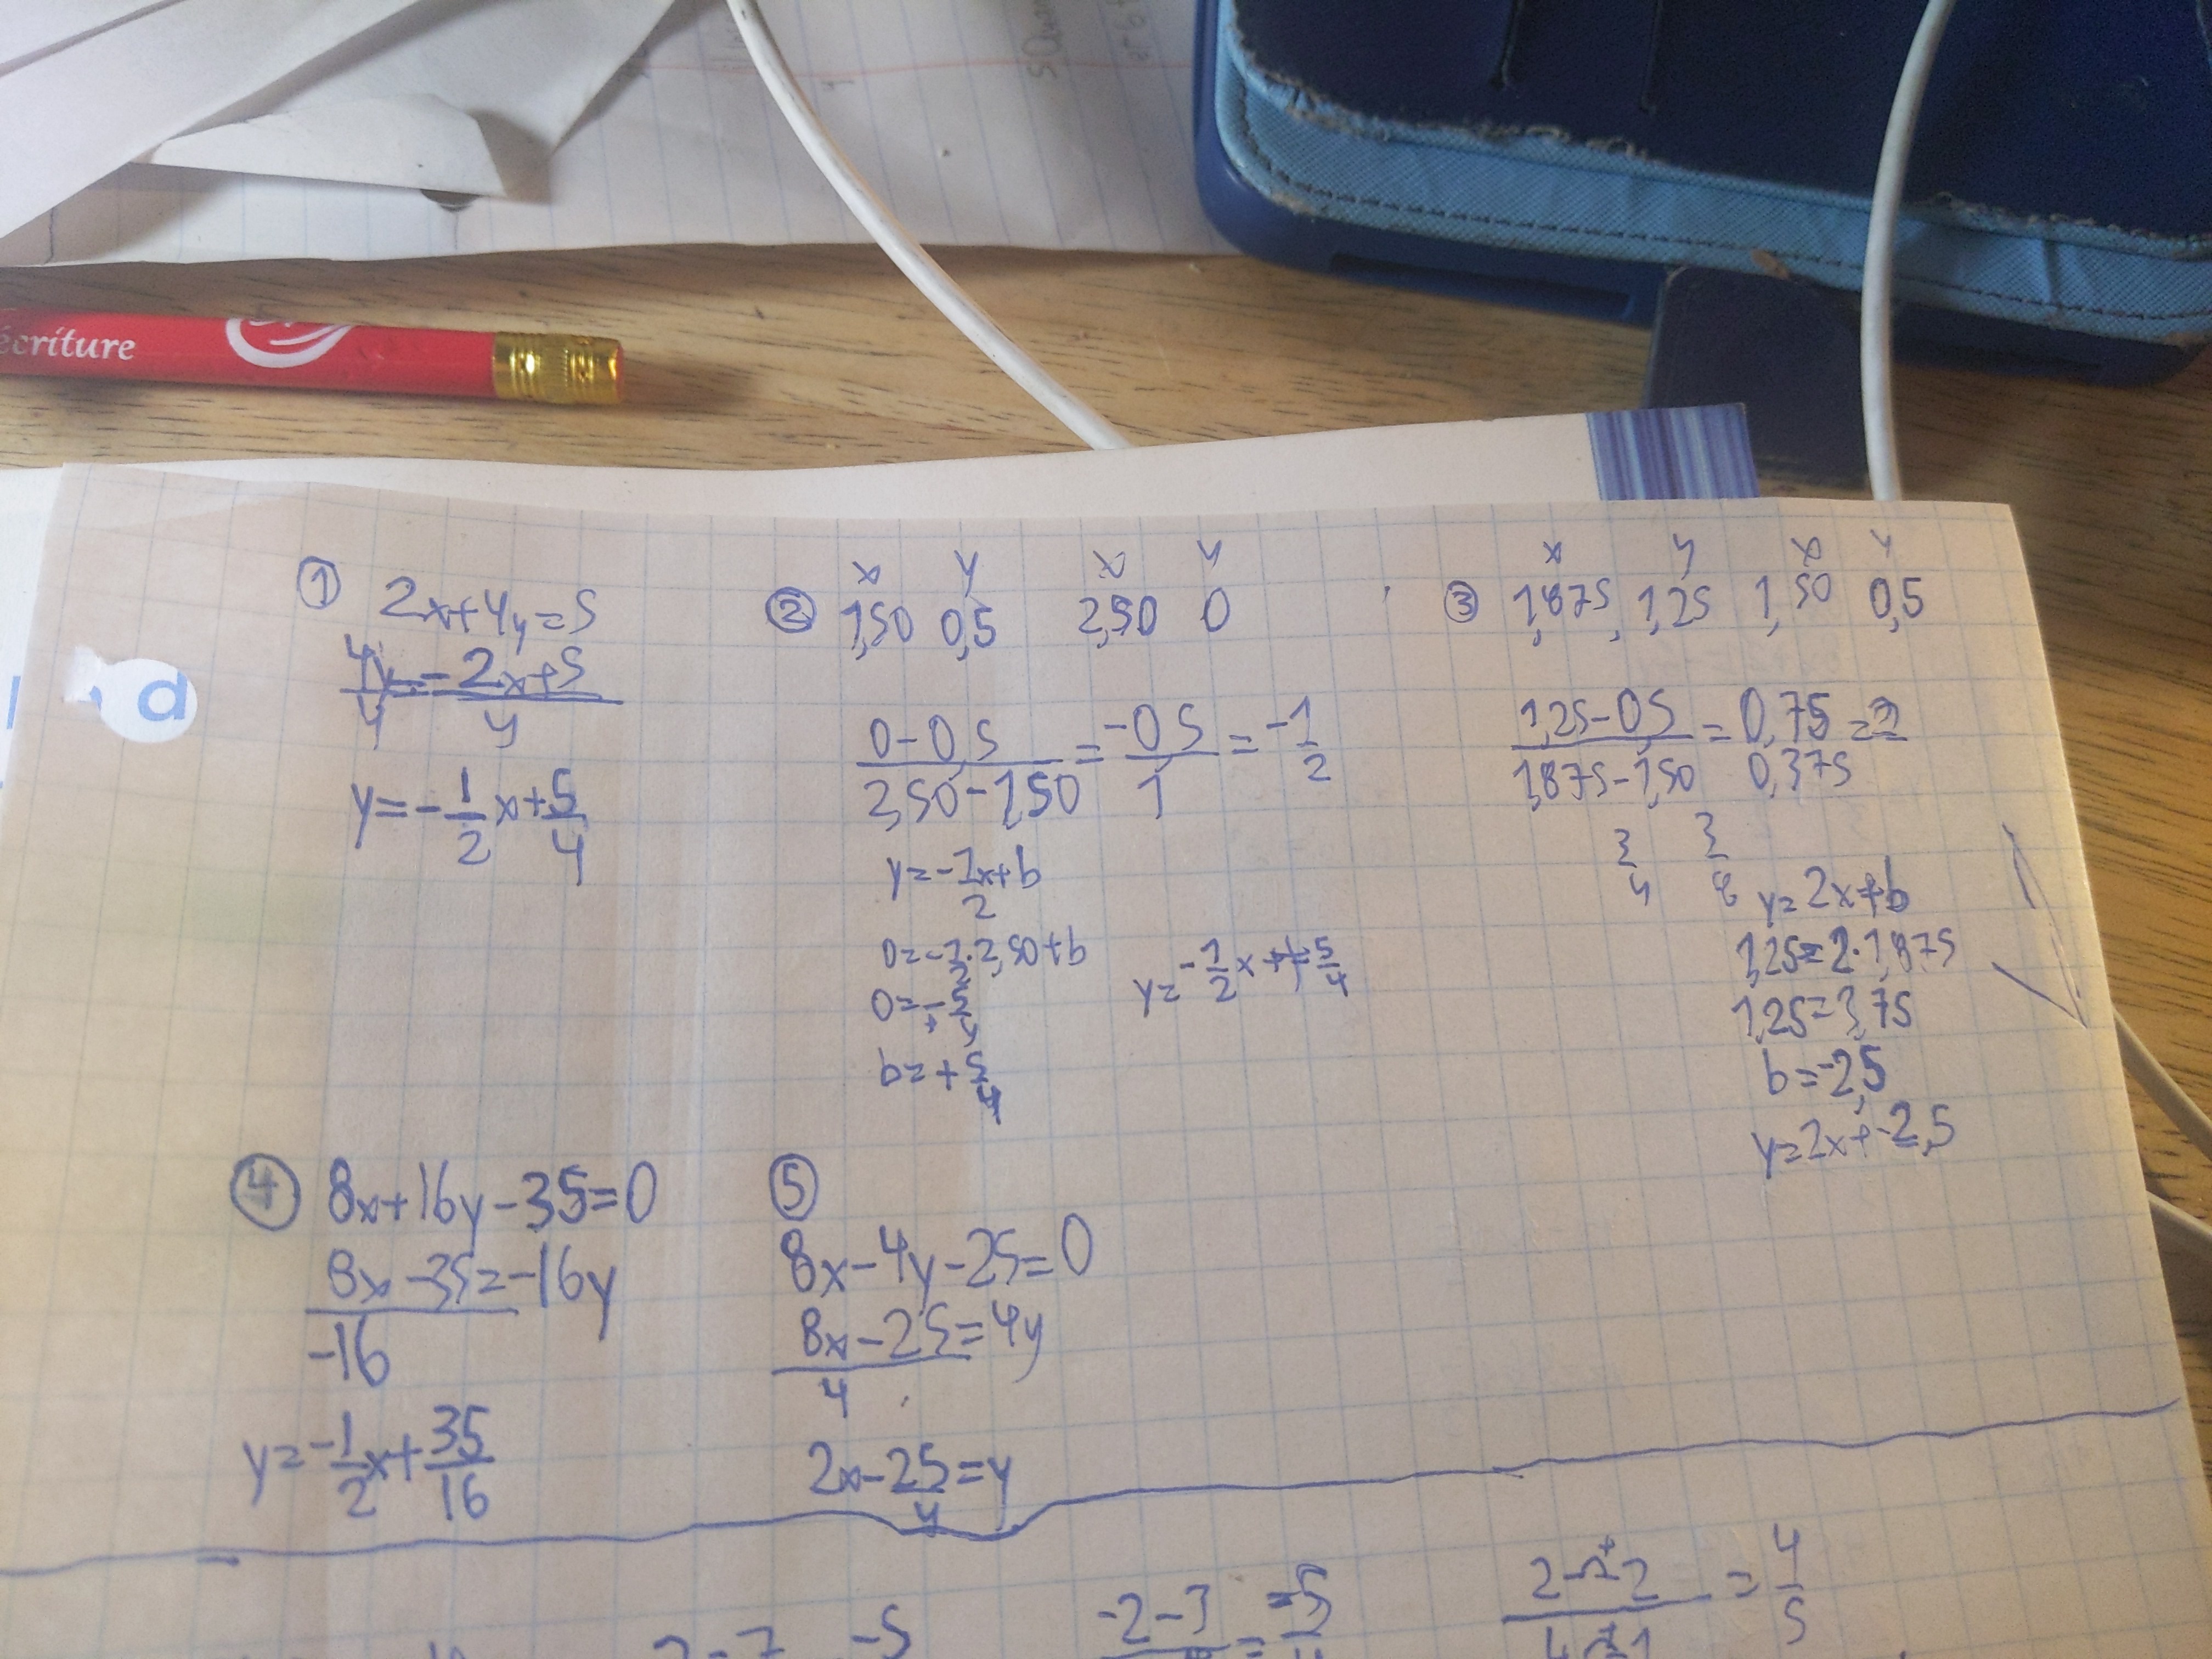 écriture
d
① 2x+4y=5
4y=-2x+5
4 4
y=-1/2x+5/4
② x y x y
1,50 0,5 2,50 0
0-0,5/2,50-1,50=-0,5/1=-1/2
y=-1/2x+b
0=-1/2·2,50+b
b=+5/4
y=-1/2x+5/4
③ x y x y
1,875, 1,25 1,50 0,5
1,25-0,5/1,875-1,50=0,75/0,375=2
3/4 3/8
y=2x+b
1,25=2·1,875
1,25=3,75
b=-2,5
y=2x+-2,5
④ 8x+16y-35=0
8x-35=-16y
-16
y=-1/2x+35/16
⑤
8x-4y-25=0
8x-25=4y
4
2x-25/4=y
-2-3
=-5
=4/5